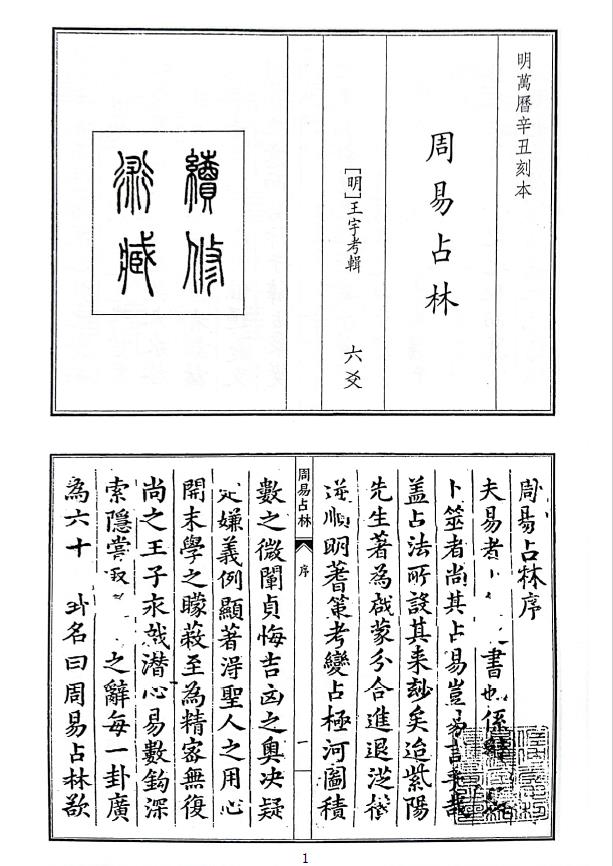 明萬曆辛丑刻本
周易占林
[明]王宇考輯 六爻
續修
術藏
周易占林序
夫易者卜 書也係
卜筮者尚其占易豈易言乎哉
盖占法所設其来玅矣迨紫陽
先生著為啟蒙分合進退從橫
逆順明蓍策考變占極河圖積
周易占林
序
一
數之微闡貞悔吉凶之奥决疑
定嫌義例顯著淂聖人之用心
開末學之矇蔽至為精密無復
尚之王子永㦲潜心易數鈎深
索隱嘗取 之辭每一卦廣
為六十 卦名曰周易占林欲
1